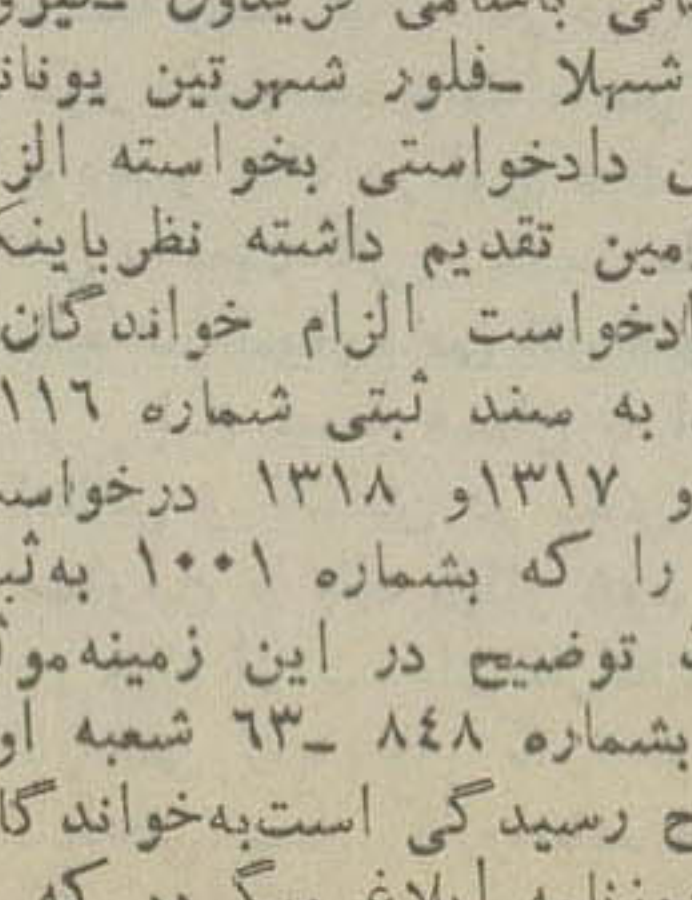 شهلا ـ فلور شهرتین یونانـ
دادخواستی بخواسته الز
مین تقدیم داشته نظر باینکـ
ادخواست الزام خواندگان
به سند ثبتی شماره ۱۱٦
و ۱۳۱۷ و ۱۳۱۸ درخواسـ
را که بشماره ۱۰۰۱ به ثبـ
توضیح در این زمینه مو
بشماره ۸٤۸ ـ ٦۳ شعبه او
ح رسیدگی است به خواندگا